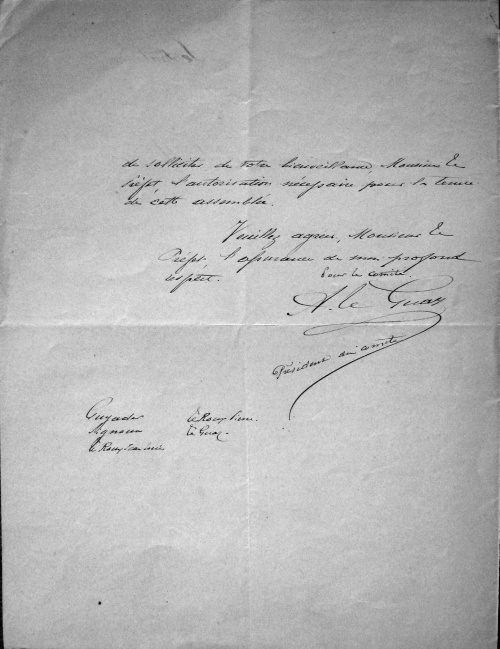 de solliciter de votre bienveillance, Monsieur le
Préfet, l'autorisation nécessaire pour la tenue
de cette assemblée.
Veuillez agréer, Monsieur le
Préfet, l'assurance de mon profond
respect.
Pour le comité
A. le Guay
Président du comité
Guyader
le Roux
le Guay
le Roux